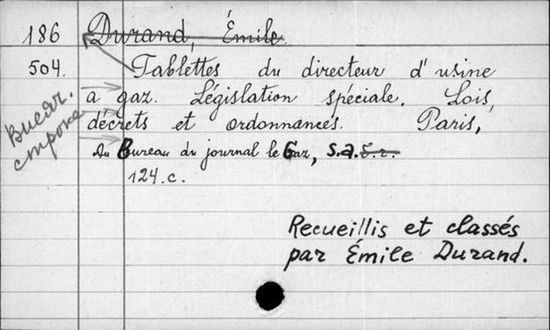 186 Durand, Émile.
504. Tablettes du directeur d'usine
a gaz. Législation spéciale. Lois,
décrets et ordonnances. Paris,
Au Bureau du journal le Gaz, s.a. s.r.
124.c.
Висяч.
строке
Recueillis et classés
par Émile Durand.